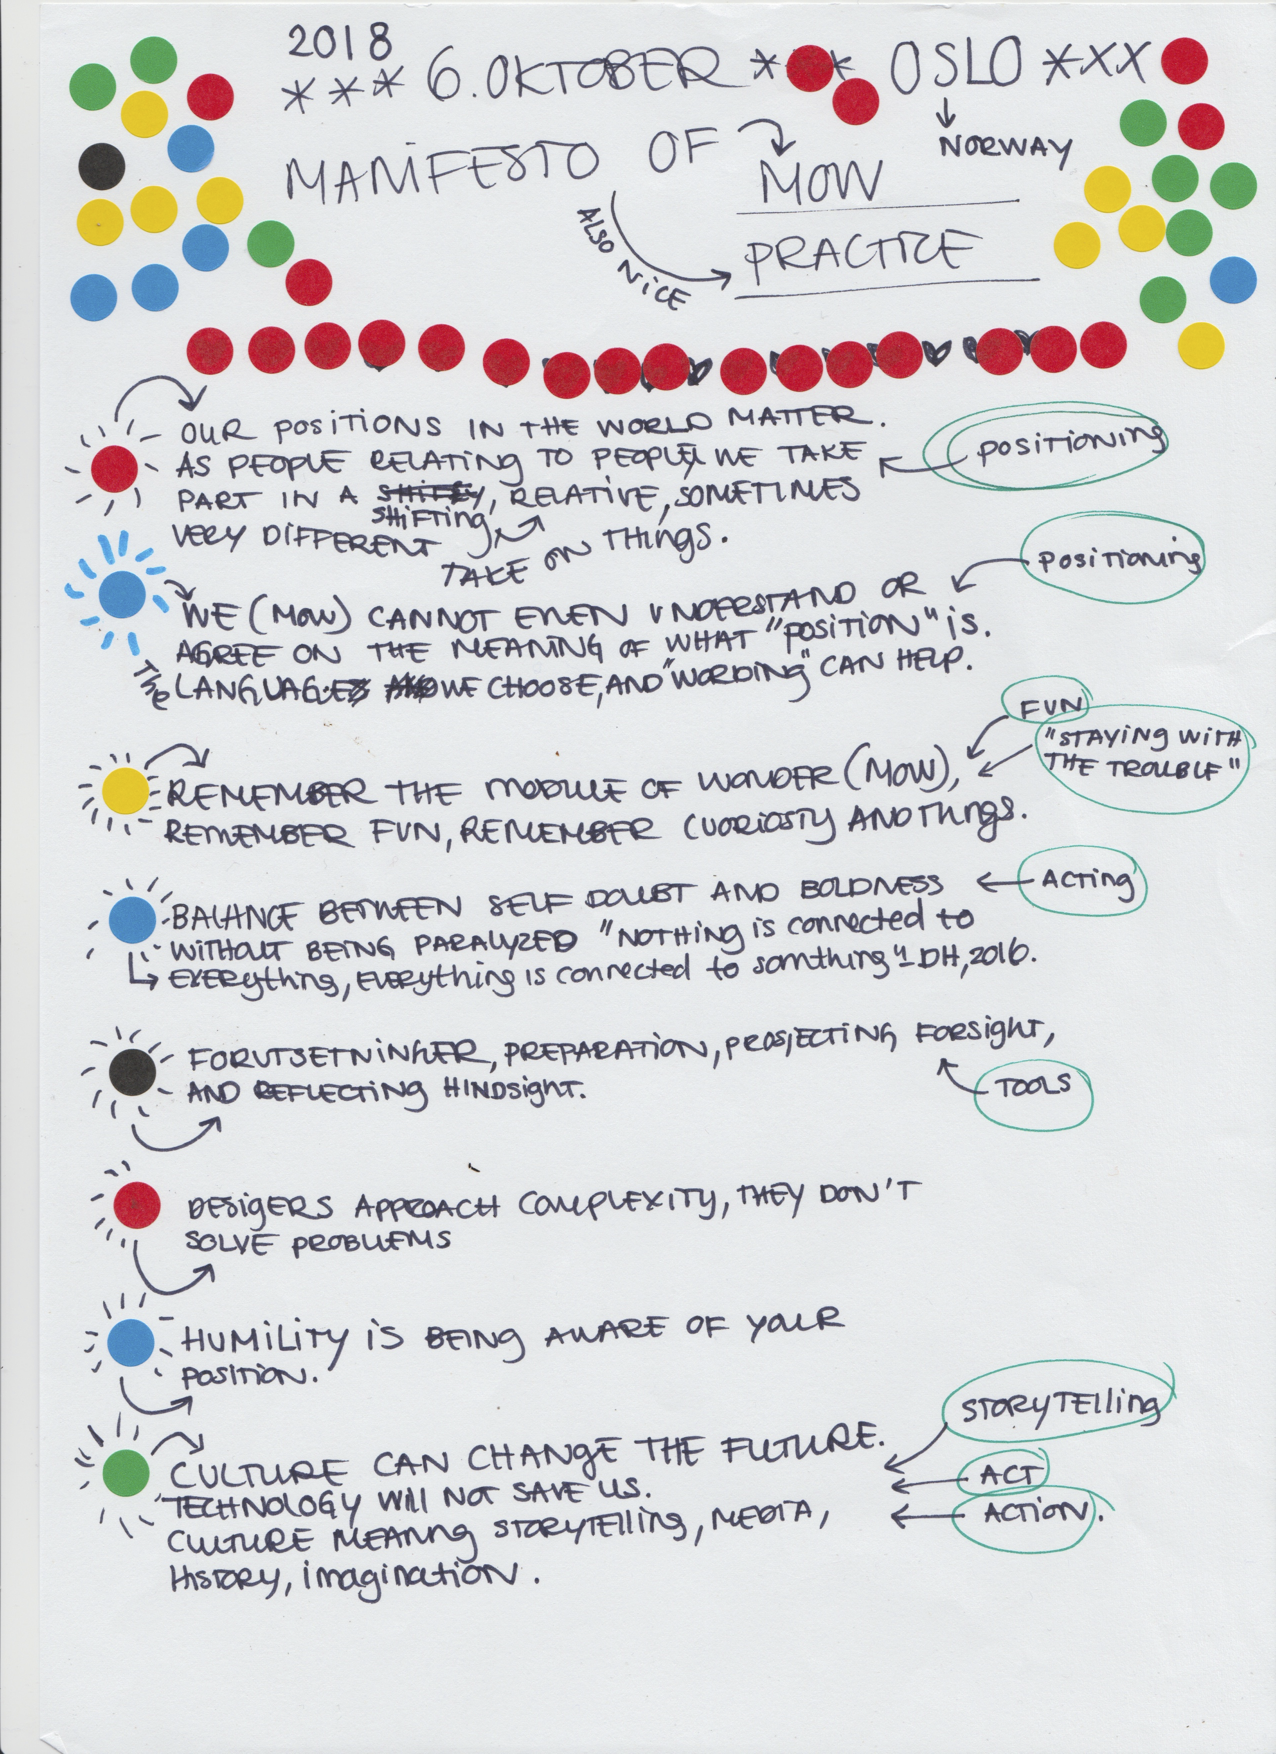 2018
*** 6. OKTOBER *** OSLO ***
NORWAY
MANIFESTO OF MOW
ALSO NICE
PRACTICE
OUR POSITIONS IN THE WORLD MATTER.
AS PEOPLE RELATING TO PEOPLE, WE TAKE
POSITIONING
PART IN A SHIFTY, RELATIVE, SOMETIMES
SHIFTING
VERY DIFFERENT TAKE ON THINGS.
POSITIONING
WE (MOW) CANNOT EVEN UNDERSTAND OR
AGREE ON THE MEANING OF WHAT "POSITION" IS.
THE LANGUAGE WE CHOOSE, AND "WORDING" CAN HELP.
FUN
"STAYING WITH
THE TROUBLE"
REMEMBER THE MODULE OF WONDER (MOW),
REMEMBER FUN, REMEMBER CUORIOSTY AND THINGS.
BALANCE BETWEEN SELF DOUBT AND BOLDNESS
ACTING
WITHOUT BEING PARALYZED "NOTHING is connected to
EVERYthing, EVERYTHING is connected to somthing" - DH, 2016.
FORUTSETNINGER, PREPARATION, PROSJECTING FORSIGHT,
AND REFLECTING HINDSIGHT.
TOOLS
DESIGERS APPROACH COMPLEXITY, THEY DON'T
SOLVE PROBLEMS
HUMILITY IS BEING AWARE OF YOUR
POSITION.
STORYTELLING
CULTURE CAN CHANGE THE FUTURE.
ACT
TECHNOLOGY WILL NOT SAVE US.
ACTION.
CULTURE MEANNG STORYTELLING, MEDIA,
HISTORY, imagination.